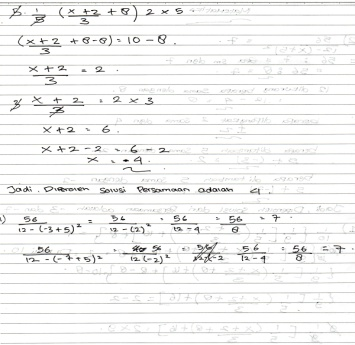 5. 1/5 (x+2/3 + 8) 2 x 5
(x+2/3 + 8-8) = 10 - 8.
x+2/3 = 2.
3 x + 2/3 = 2 x 3
x+2 = 6.
x+2-2 = 6-2
x = 4.
Jadi. Diperoleh solusi Persamaan adalah 4.
56/12-(-3+5)² = 56/12-(2)² = 56/12-4 = 56/8 = 7.
56/12-(-7+5)² = 56/12(-2)² = 56/12-4 = 56/8 = 7.